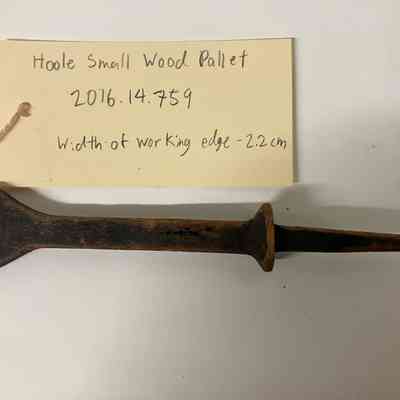 Hoole Small Wood Pallet
2016.14.759
Width of working edge - 2.2cm